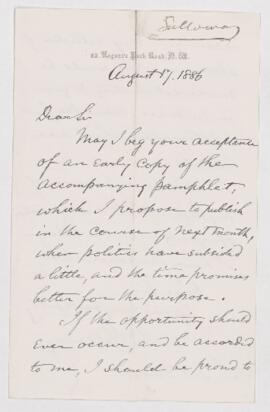 Galloway
Regent's Park Road. N. W.
August 17. 1886
Dear Sir
May I beg your acceptance
of an early copy of the
accompanying pamphlet,
which I propose to publish
in the course of next month,
when politics have subsided
a little, and the time promises
better for the purpose.
If the opportunity should
ever occur, and be accorded
to me, I should be proud to